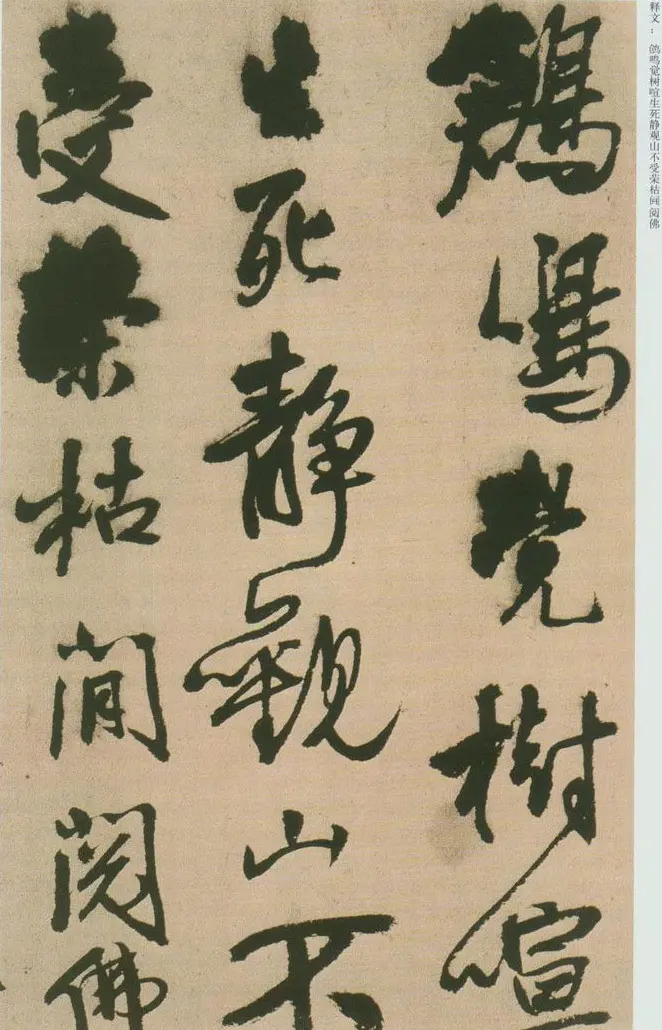 释文：鸽鸣觉树喧生死静观山不受荣枯间阅佛
鴿鳴覺樹喧
生死靜觀山不
受榮枯閒閱佛